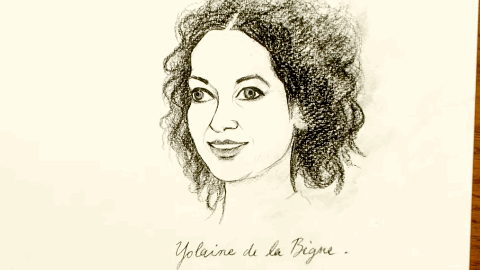 Yolaine de la Bigne.